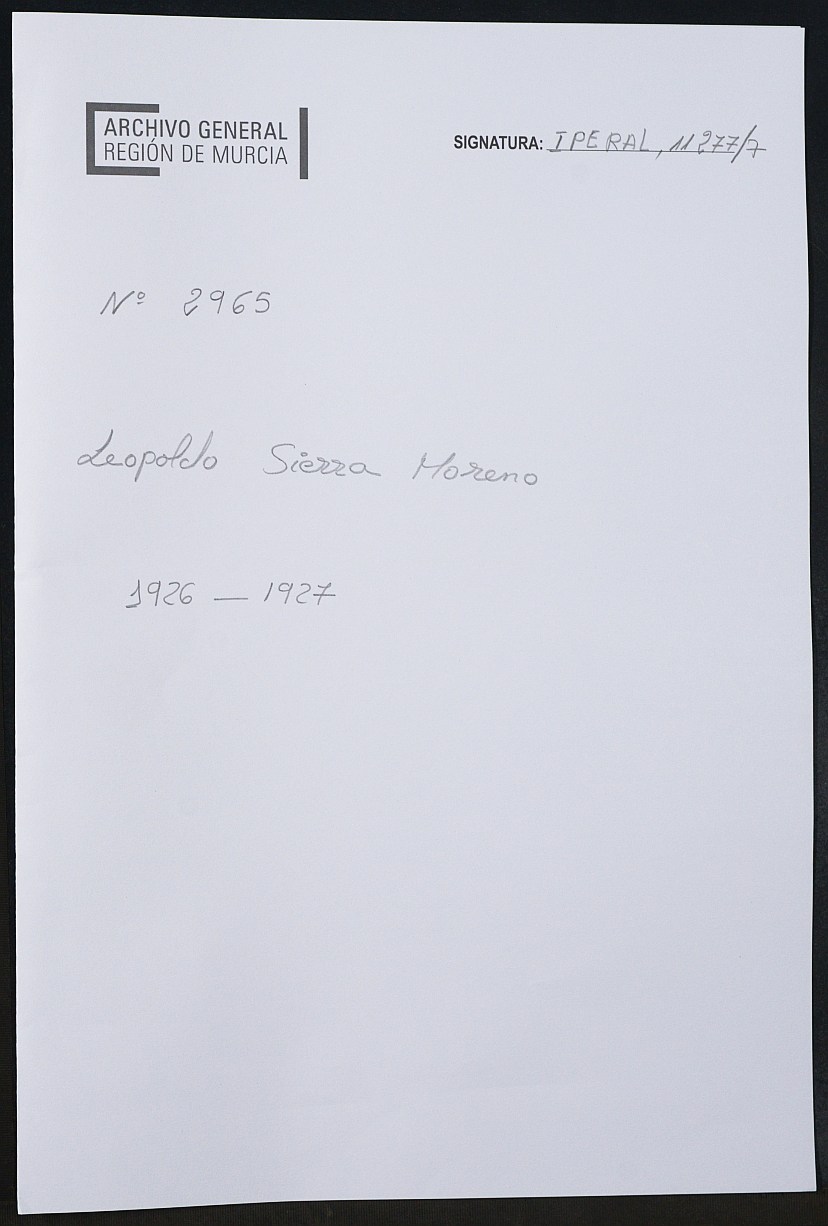 ARCHIVO GENERAL
REGIÓN DE MURCIA
SIGNATURA: IPERAL, 11277/7
Nº 2965
Leopoldo Sierra Moreno
1926 — 1927